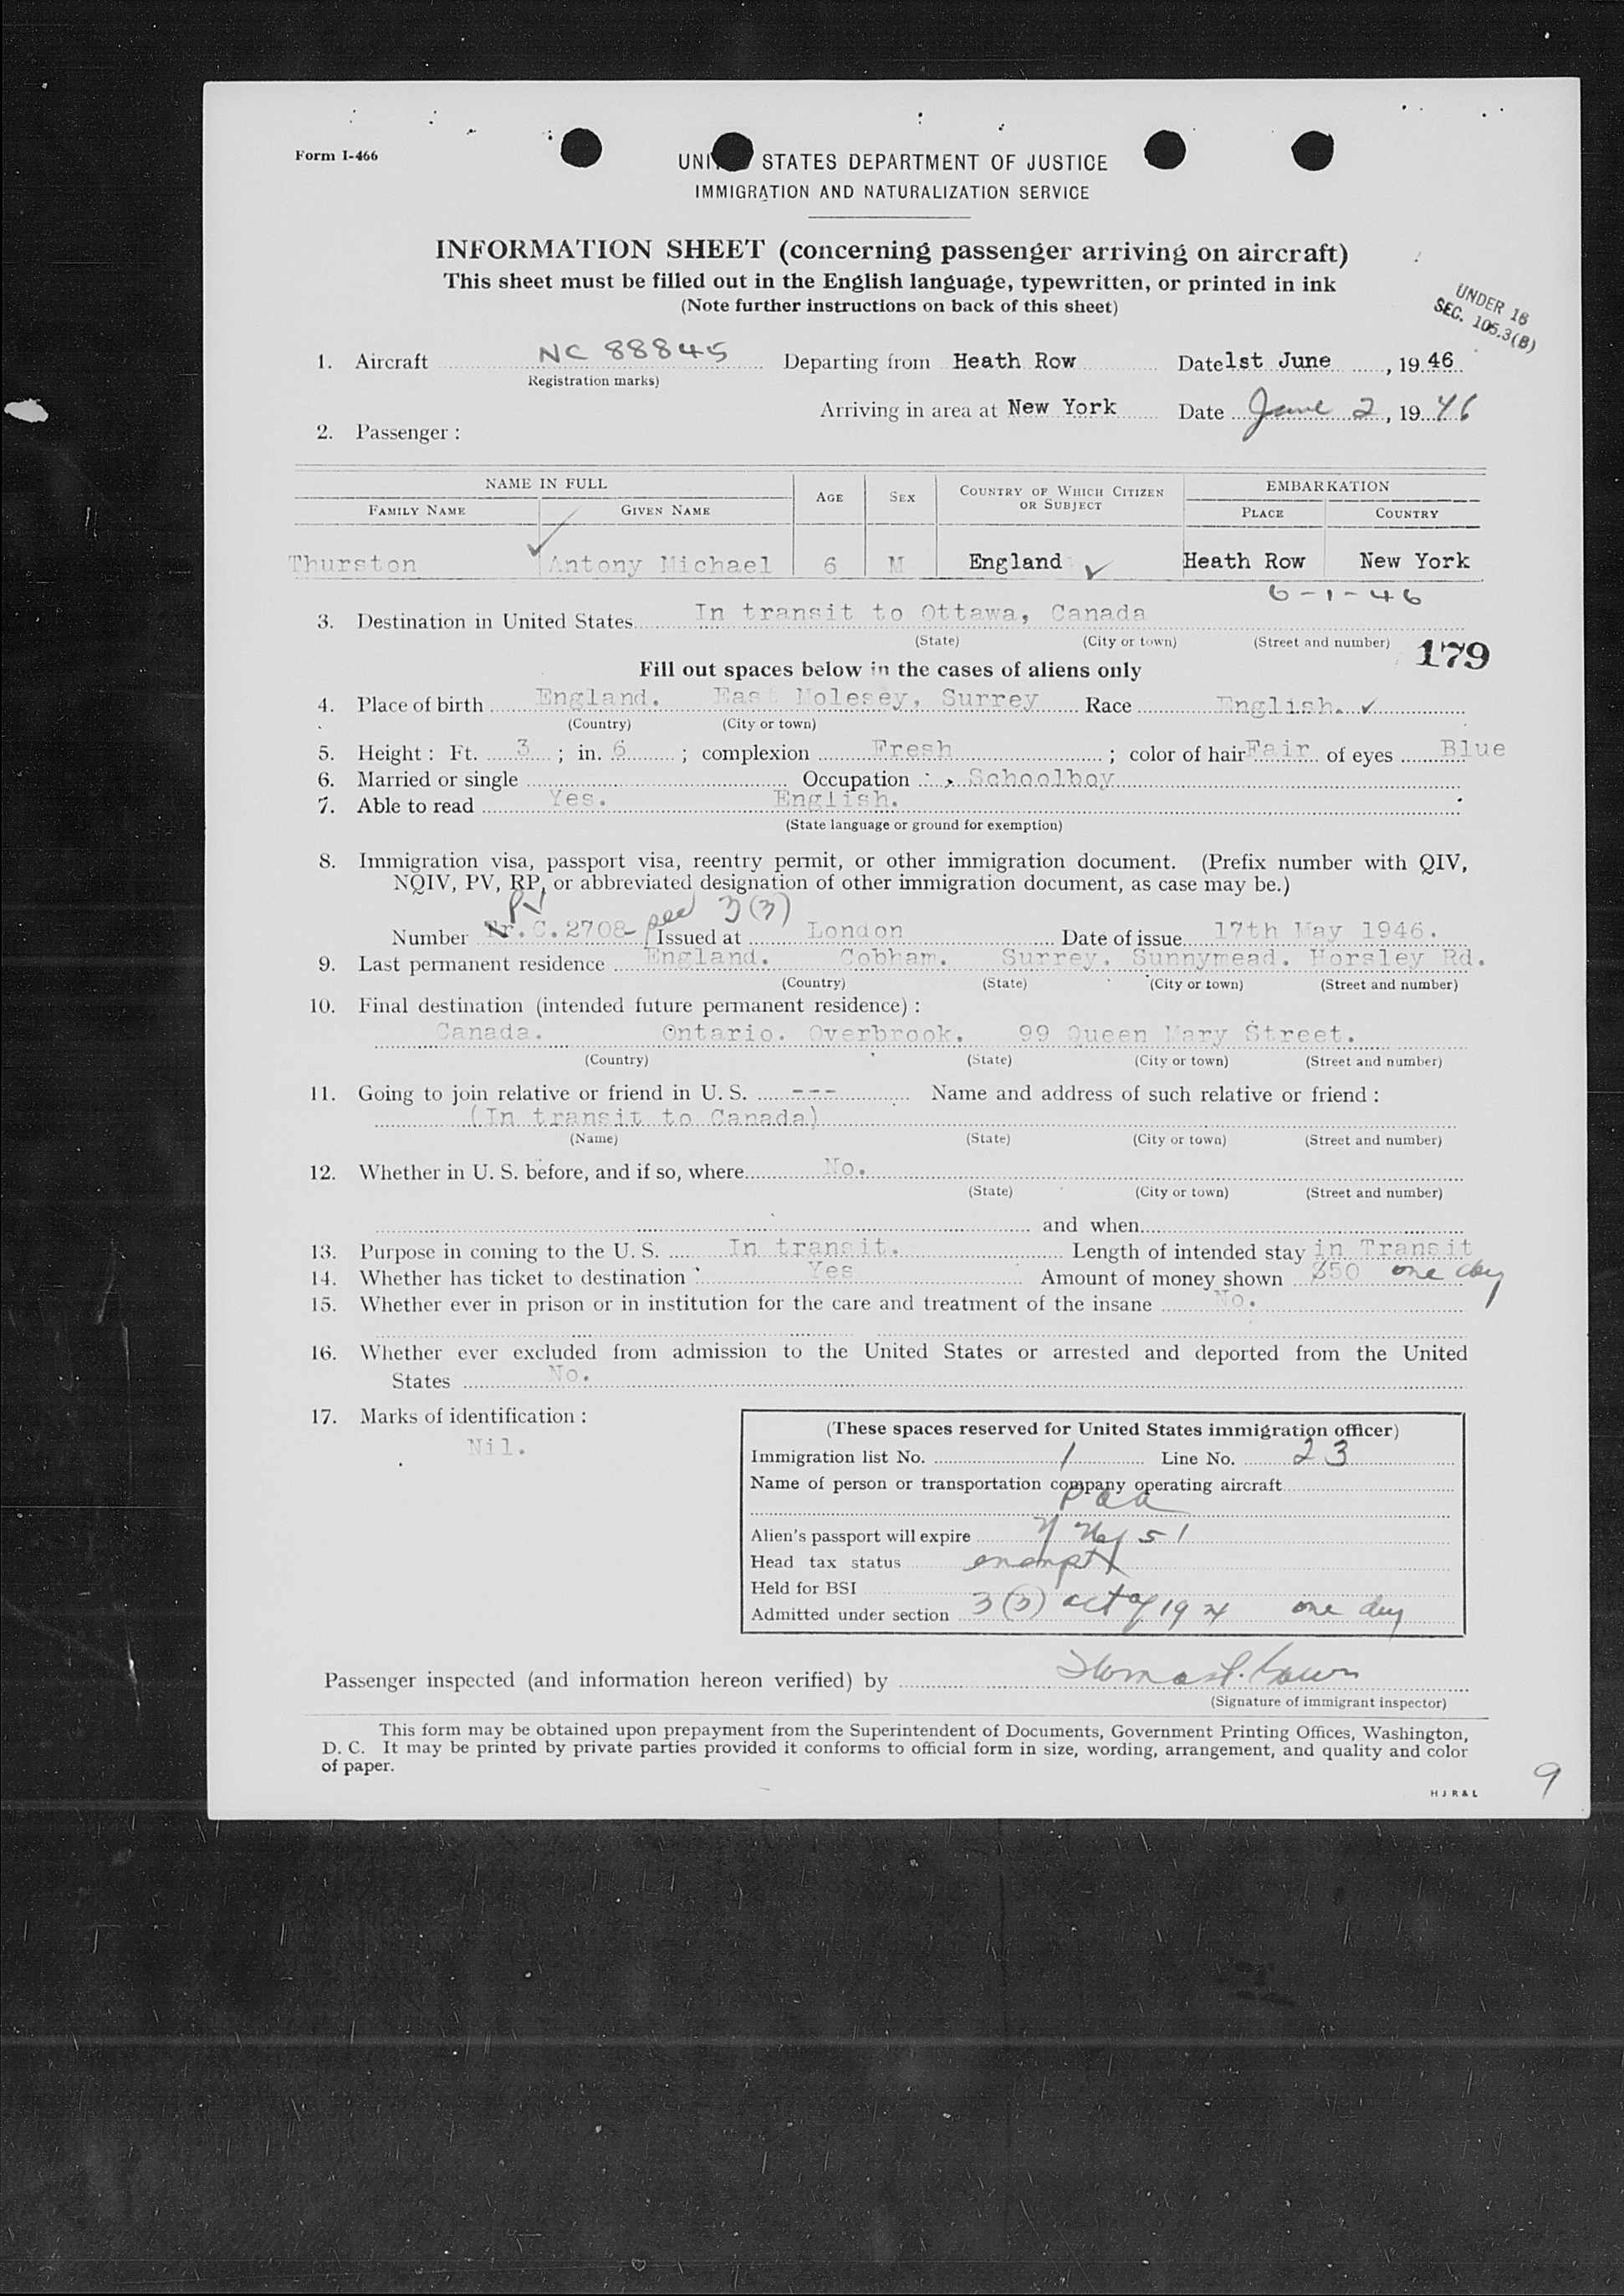 Form I-466
UNITED STATES DEPARTMENT OF JUSTICE
IMMIGRATION AND NATURALIZATION SERVICE
INFORMATION SHEET (concerning passenger arriving on aircraft)
This sheet must be filled out in the English language, typewritten, or printed in ink
(Note further instructions on back of this sheet)
UNDER 16
SEC. 105.3(B)
1. Aircraft NC 88845 Departing from Heath Row Date 1st June, 19 46
Registration marks)
Arriving in area at New York Date June 2, 19 46
2. Passenger :
NAME IN FULL AGE SEX COUNTRY OF WHICH CITIZEN OR SUBJECT EMBARKATION
FAMILY NAME GIVEN NAME PLACE COUNTRY
Thurston Antony Michael 6 M England Heath Row New York
6-1-46
3. Destination in United States In transit to Ottawa, Canada
(State) (City or town) (Street and number) 179
Fill out spaces below in the cases of aliens only
4. Place of birth England. East Molesey, Surrey Race English.
(Country) (City or town)
5. Height : Ft. 3 ; in. 6 ; complexion Fresh ; color of hair Fair of eyes Blue
6. Married or single Occupation : Schoolboy
7. Able to read Yes. English.
(State language or ground for exemption)
8. Immigration visa, passport visa, reentry permit, or other immigration document. (Prefix number with QIV,
NQIV, PV, RP, or abbreviated designation of other immigration document, as case may be.)
PV 3(3)
Number Nr.C.2708 Issued at London Date of issue 17th May 1946.
9. Last permanent residence England. Cobham. Surrey. Sunnymead. Horsley Rd.
(Country) (State) (City or town) (Street and number)
10. Final destination (intended future permanent residence) :
Canada. Ontario. Overbrook. 99 Queen Mary Street.
(Country) (State) (City or town) (Street and number)
11. Going to join relative or friend in U. S. --- Name and address of such relative or friend :
(In transit to Canada)
(Name) (State) (City or town) (Street and number)
12. Whether in U. S. before, and if so, where No.
(State) (City or town) (Street and number)
and when
13. Purpose in coming to the U. S. In transit. Length of intended stay in Transit
14. Whether has ticket to destination Yes Amount of money shown $50 one day
15. Whether ever in prison or in institution for the care and treatment of the insane No.
16. Whether ever excluded from admission to the United States or arrested and deported from the United
States No.
17. Marks of identification :
Nil.
(These spaces reserved for United States immigration officer)
Immigration list No. 1 Line No. 23
Name of person or transportation company operating aircraft
Paa
Alien's passport will expire 51
Head tax status exempt
Held for BSI
Admitted under section 3(3) act of 1924 one day
Passenger inspected (and information hereon verified) by
(Signature of immigrant inspector)
This form may be obtained upon prepayment from the Superintendent of Documents, Government Printing Offices, Washington,
D. C. It may be printed by private parties provided it conforms to official form in size, wording, arrangement, and quality and color
of paper.
9
H J R & L